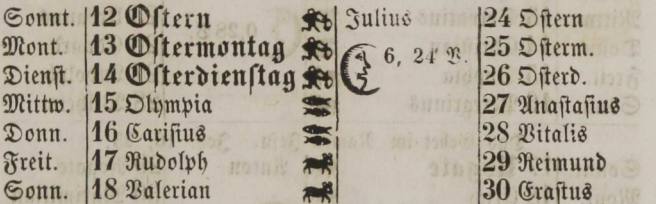 Sonnt. 12 Ostern Julius 24 Ostern
Mont. 13 Ostermontag 6, 24 V. 25 Osterm.
Dienst. 14 Osterdienstag 26 Osterd.
Mittw. 15 Olympia 27 Anastasius
Donn. 16 Carisius 28 Vitalis
Freit. 17 Rudolph 29 Reimund
Sonn. 18 Valerian 30 Erastus